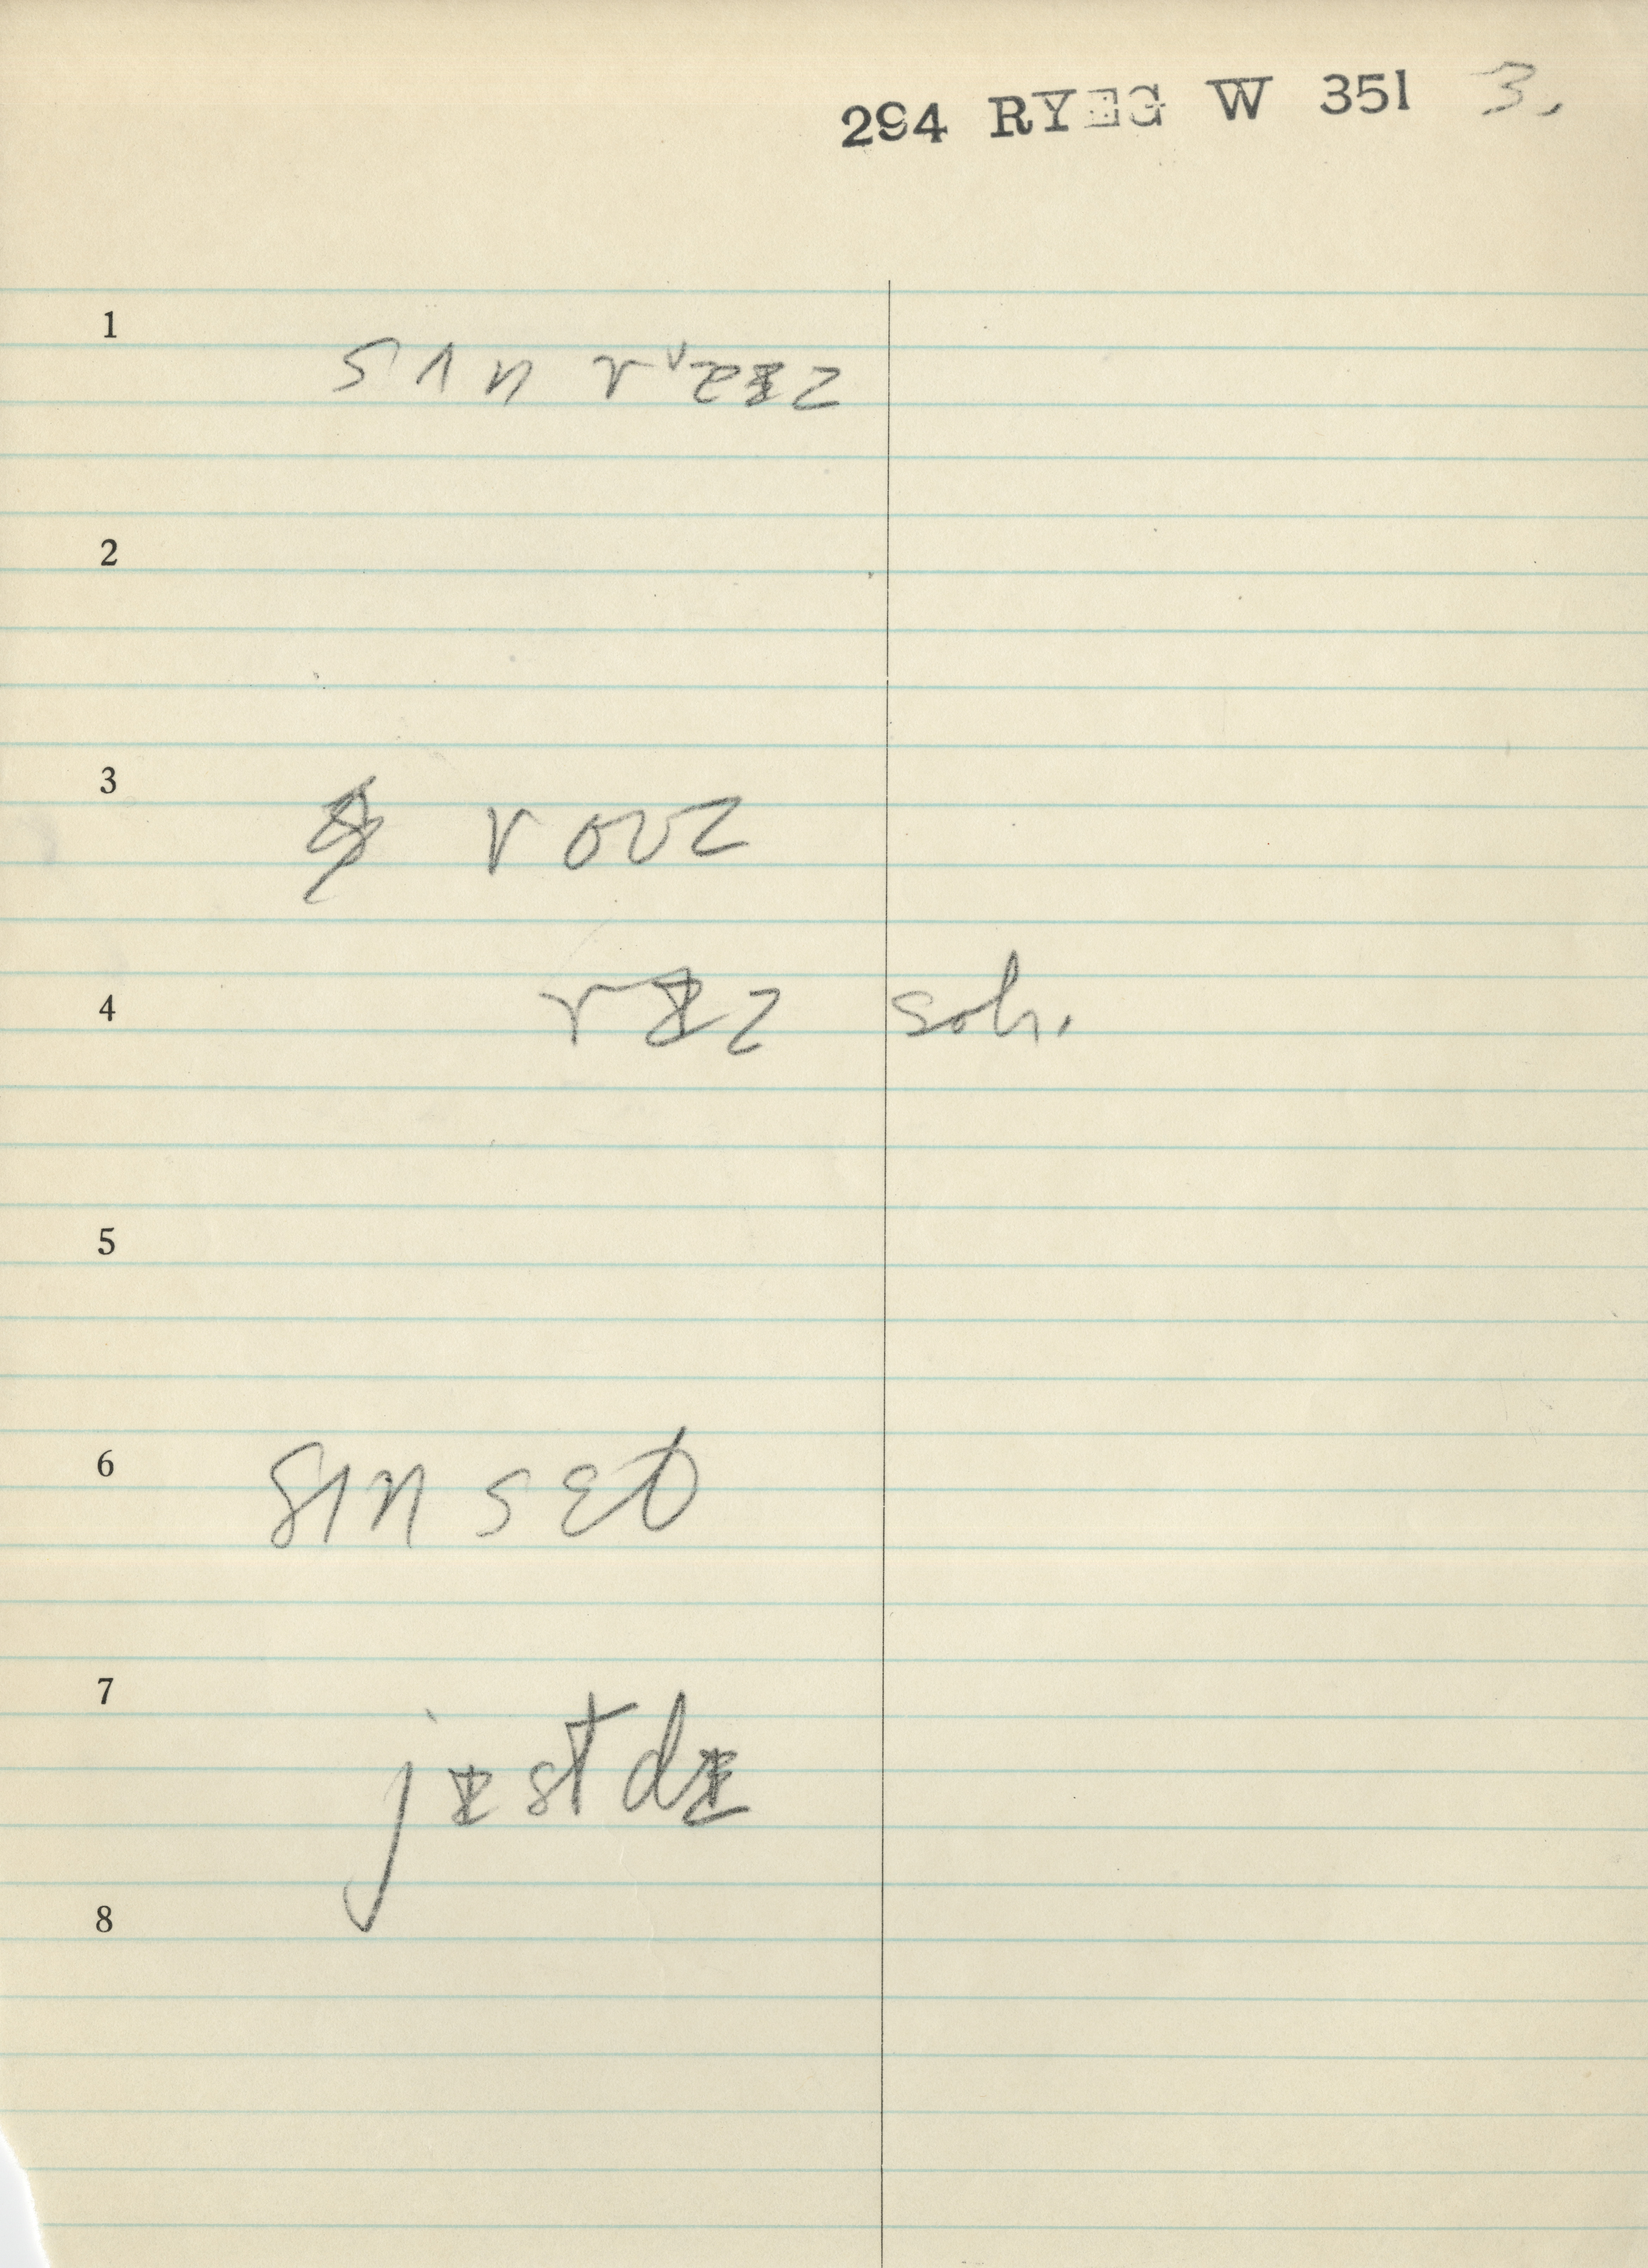 294 RYEG W 351 3.
1 sʌn rᵛɐɪz
2
3 rouz
4 rɪz soh.
5
6 sʌn sɛt
7 jɪstdɪ
8